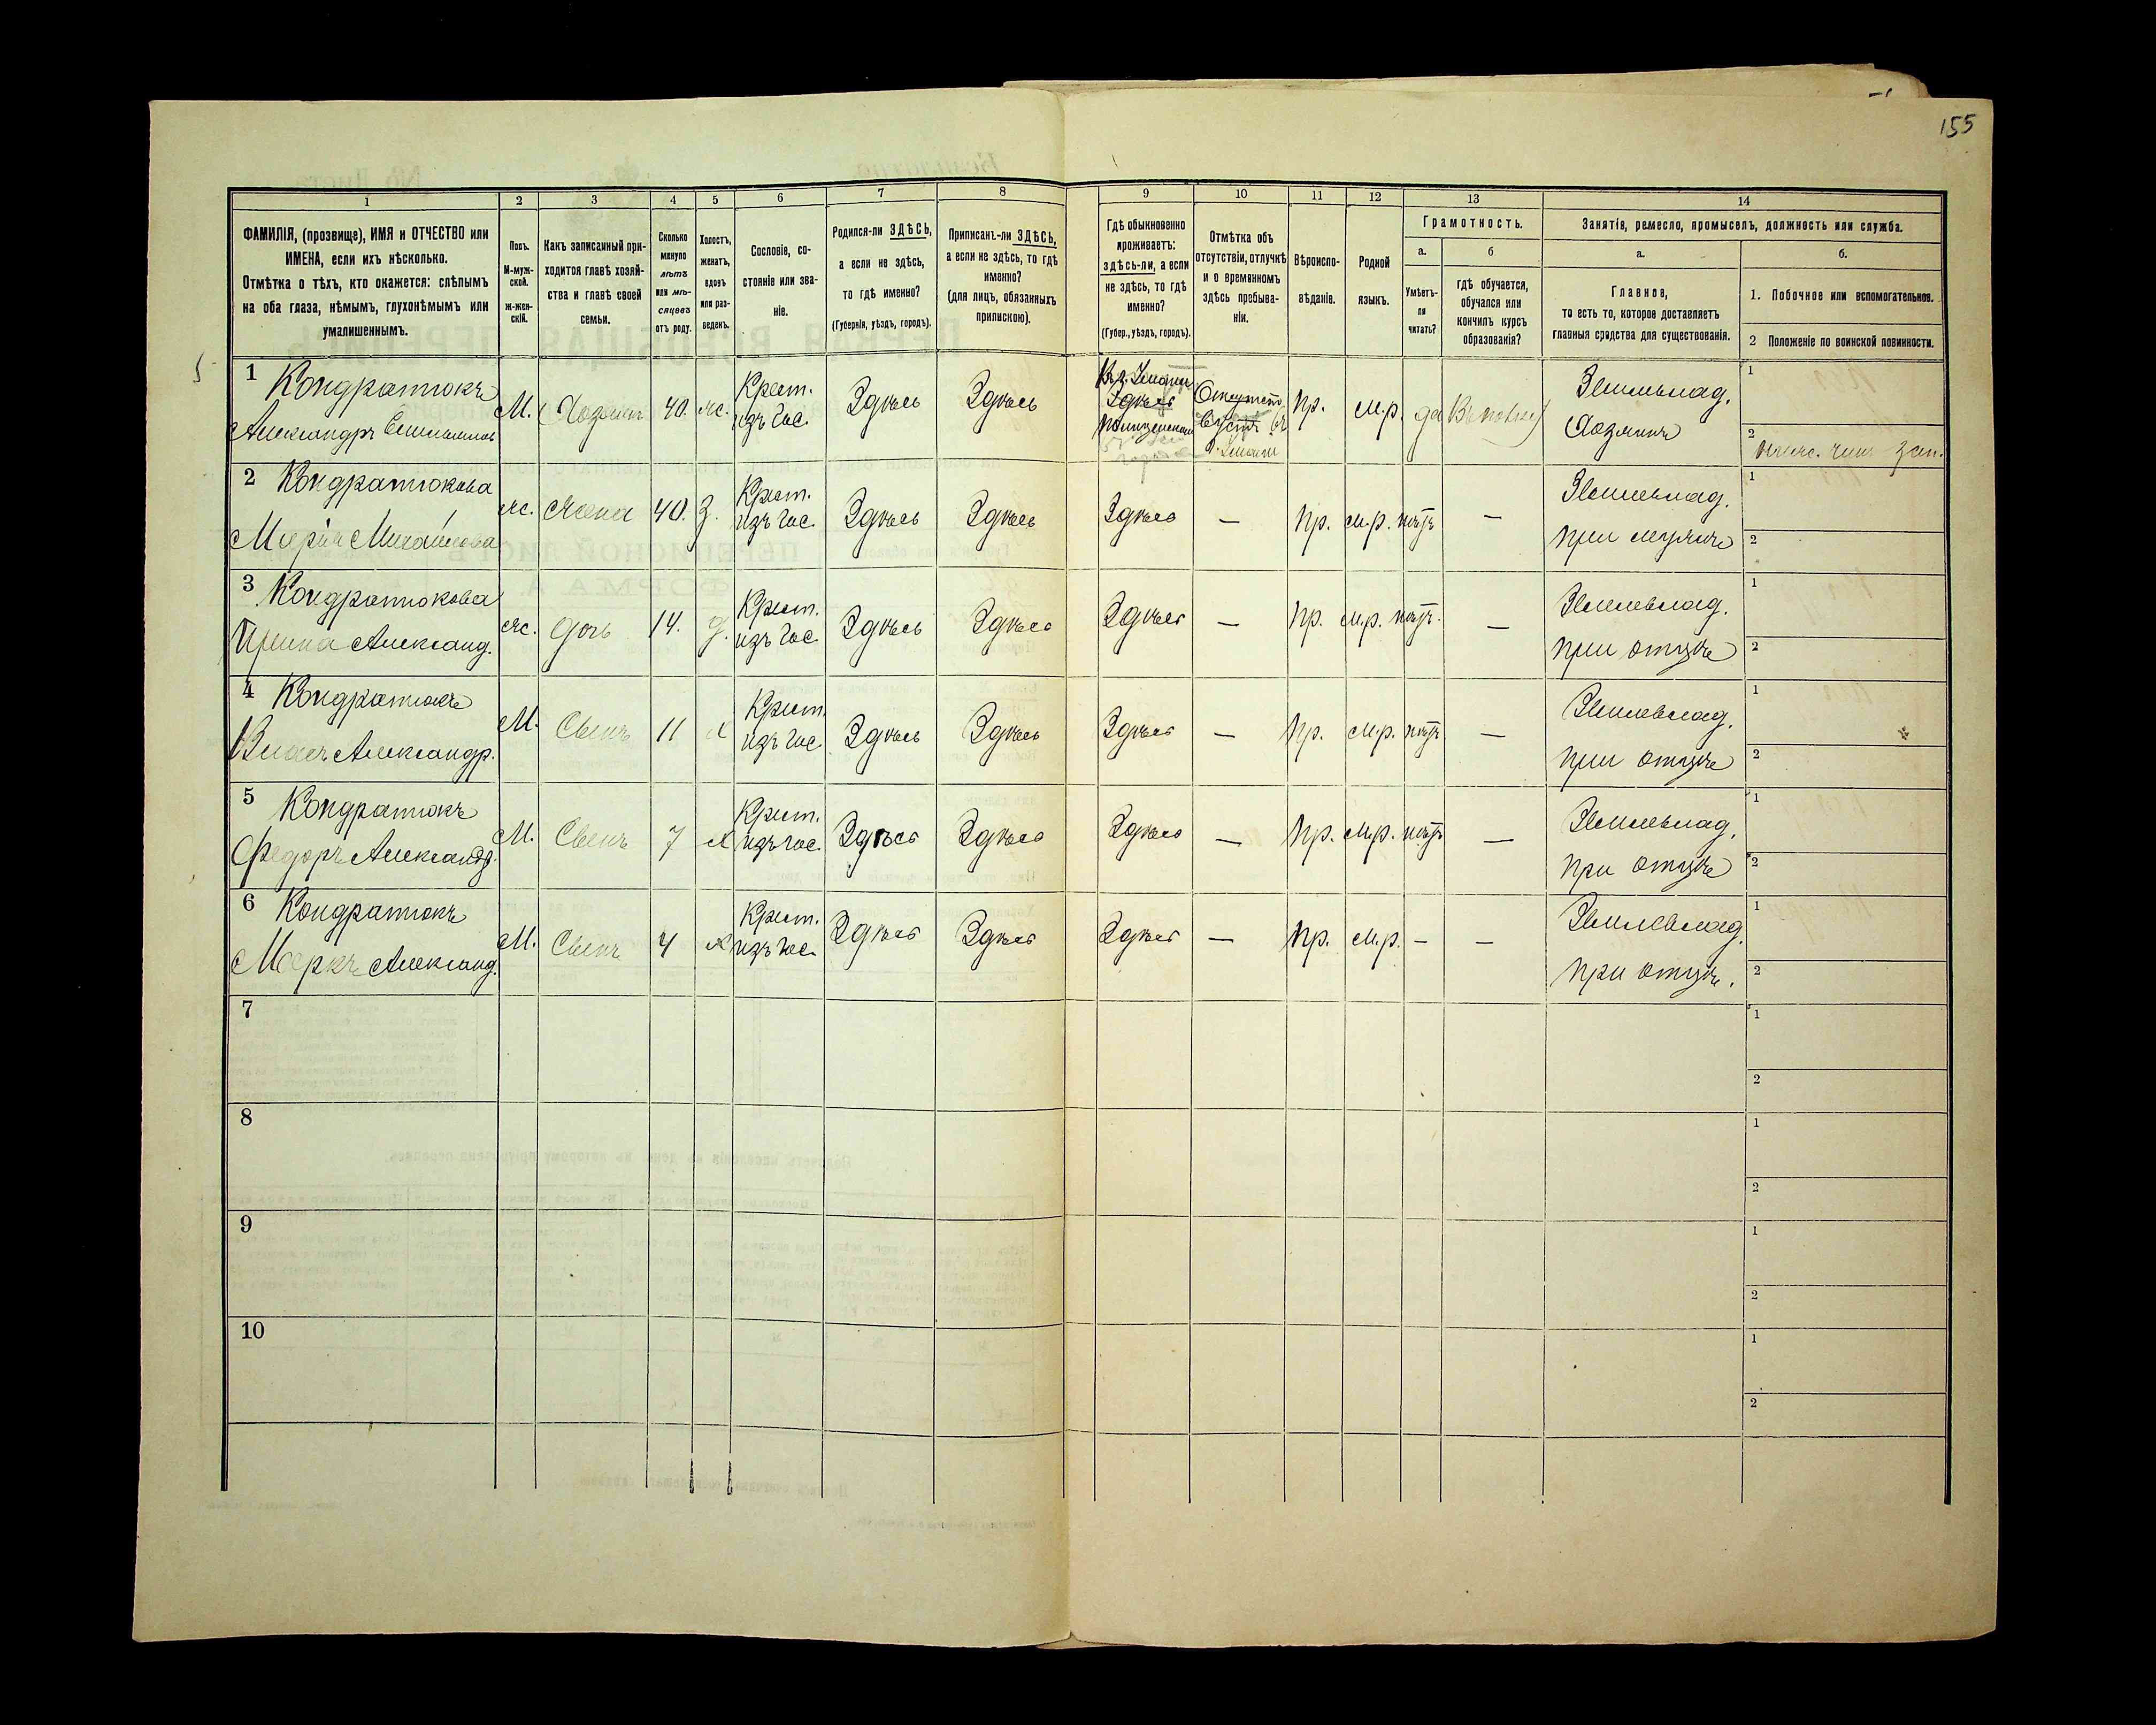 155
1
2
3
4
5
6
7
8
9
10
11
12
13
14
ФАМИЛІЯ, (прозвище), ИМЯ и ОТЧЕСТВО или
ИМЕНА, если ихъ нѣсколько.
Отмѣтка о тѣхъ, кто окажется: слѣпымъ
на оба глаза, нѣмымъ, глухонѣмымъ или
умалишеннымъ.
Полъ.
М-муж-
ской.
Ж-жен-
скій.
Какъ записанный при-
ходится главѣ хозяй-
ства и главѣ своей
семьи.
Сколько
минуло
лѣтъ
или мѣ-
сяцевъ
отъ роду.
Холостъ,
женатъ,
вдовъ
или раз-
веденъ.
Сословіе, со-
стояніе или зва-
ніе.
Родился-ли ЗДѢСЬ,
а если не здѣсь,
то гдѣ именно?
(Губернія, уѣздъ, городъ).
Приписанъ-ли ЗДѢСЬ,
а если не здѣсь, то гдѣ
именно?
(для лицъ, обязанныхъ
припискою).
Гдѣ обыкновенно
проживаетъ:
здѣсь-ли, а если
не здѣсь, то гдѣ
именно?
(Губер., уѣздъ, городъ).
Отмѣтка объ
отсутствіи, отлучкѣ
и о временномъ
здѣсь пребыва-
ніи.
Вѣроиспо-
вѣданіе.
Родной
языкъ.
Грамотность.
а.
б
Умѣетъ-
ли
читать?
гдѣ обучается,
обучался или
кончилъ курсъ
образованія?
Занятія, ремесло, промыселъ, должность или служба.
а.
б.
Главное,
то есть то, которое доставляетъ
главныя средства для существованія.
1. Побочное или вспомогательное.
2 Положеніе по воинской повинности.
1 Кондратюкъ
Александръ
М. Хозяин 40. ж. Крест. изъ гос. Здѣсь Здѣсь
Здѣсь
Отсутст.
Пр. м.р. да
Землевлад.
Хозяинъ
1
2 зап.
2 Кондратюкова
Марія Михайлова
ж. Жена 40. З. Крест. изъ гос. Здѣсь Здѣсь Здѣсь — Пр. м.р. нѣтъ —
Землевлад.
при мужѣ
1
2
3 Кондратюкова
Ирина Александ.
ж. дочь 14. д. Крест. изъ гос. Здѣсь Здѣсь Здѣсь — Пр. м.р. нѣтъ. —
Землевлад.
при отцѣ
1
2
4 Кондратюкъ
Власъ Александр.
М. Сынъ 11 х Крест. изъ гос. Здѣсь Здѣсь Здѣсь — Пр. м.р. нѣтъ —
Землевлад.
при отцѣ
1
2
5 Кондратюкъ
Федоръ Александр.
М. Сынъ 7 х Крест. изъ гос. Здѣсь Здѣсь Здѣсь — Пр. м.р. нѣтъ —
Землевлад.
при отцѣ
1
2
6 Кондратюкъ
Маркъ Александ.
М. Сынъ 4 х Крест. изъ гос. Здѣсь Здѣсь Здѣсь — Пр. м.р. — —
Землевлад.
при отцѣ.
1
2
7
1
2
8
1
2
9
1
2
10
1
2